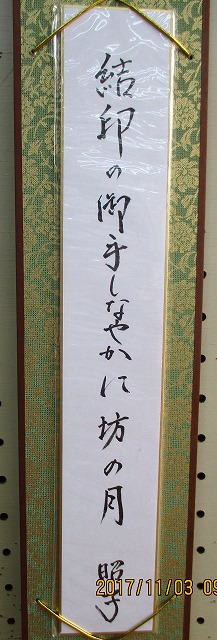 結印の御手しなやかに坊の月 昭子
2017/11/03 09